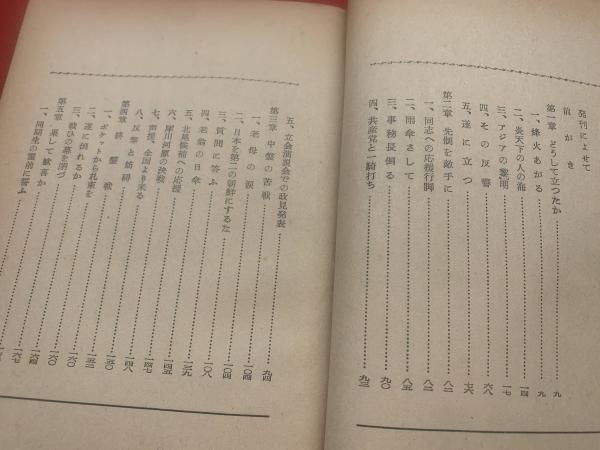 発刊によせて
前がき
第一章 どうして立つたか……九
一、烽火あがる……九
二、炎天下の人の海……一四
三、アジアの黎明……一七
四、その反響……六八
五、遂に立つ……七六
第二章 先輩を敵手に……八二
一、同志への応援行脚……八二
二、雨傘さして……八五
三、事務長倒る……九〇
四、共産党と一騎打ち……九三
五、立会演説会での政見発表……九四
第三章 中盤の苦戦……一〇四
一、老母の涙……一〇四
二、日本を第二の朝鮮にするな……一〇四
三、質問に答ふ……一〇四
四、老爺の日傘……一〇八
五、北尾候補への応援……一三九
六、犀川河原の決戦……一四四
七、声援、全国より来る……一四七
八、反撃と妨碍……一四八
第四章 終盤戦……一五〇
一、ポケットから札束を……一五〇
二、遂に倒れるか……一五二
三、戦ひの幕を閉づ……一六〇
第五章 果して歓喜か……一六四
一、同期生の霊前に誓ふ……一六七